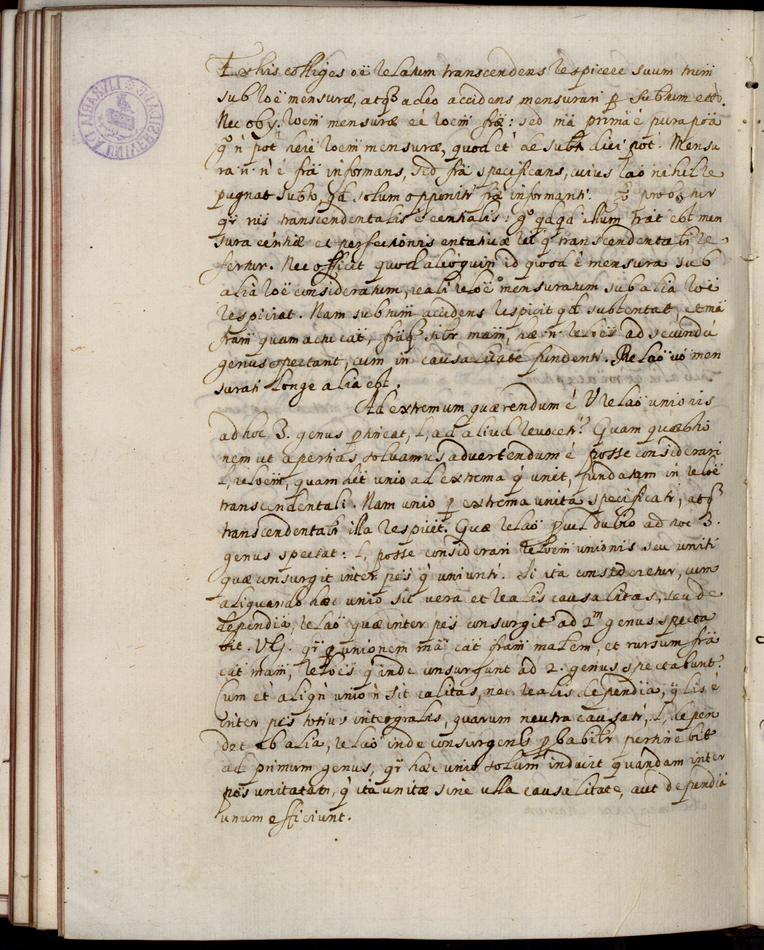 Ex his colliges oẽ relatum transcendens respicere suum trũm
sub rõe mensuræ, atq; adeo accidens mensurari p subtum
Nec obij. rõem mensuræ eẽ rõem fræ: sed mã prima è pura poã
qũ ñ põt hẽre rõem mensuræ, quod et de subto dici põt. Mensu
ra .n. ñ è frã informans, sed frã specificans, cuius rão nihil re
pugnat subto, qd solum opponitr fræ informanti.
qr ris transcendentalis è eentialis: illum trãt est men
sura eentiæ et perfectionis entitativæ rei q transcendentalr re
fertur. Nec officit quod alioquin id quod è mensura sub
alia rõe consideratum, reali relõe mensuratum sub alia rõe
respiciat. Nam subtum accidens respicit qd subtentat, et mã
fram quam actu cãt, frãq; silr mam, hæ .n. relões ad secundũ
genus spectant, cum in causalitate fundentr. Relão vo men
surati longe alia est.
Ad extremum quærendum è V relão unionis
ad hoc 3. genus ptineat, l, ad aliud revocetr? Quam quæstio
nem ut apertius solvamus advertendum è posse considerari
l, relõem, quam hẽt unio ad extrema q unit, fundatam in relõe
transcendentali. Nam unio p extrema unita specificatr, atq;
transcendentalr illa respicit. Quæ relão pcul dubio ad hoc 3.
genus spectat: l, posse considerari relõem unionis seu uniti
quæ consurgit inter pẽs q uniuntr. Si ita consideretur, cum
aliquando hæc unio sit vera et realis causalitas, seu de
pendia, relão quæ inter pẽs consurgit ad 2m genus specta
bit. V.G. qr p unionem mã cãt fram matem, et rursum frã
cãt mam, relões q inde consurgunt ad 2. genus spectabunt.
Cum et aliqn unio ñ sit cãlitas, nec realis dependia, qlis è
inter pẽs totius integrales, quarum neutra causatr, l, depen
det ab alia, relão inde consurgens pbabilr pertinebit
ad primum genus, qr hæc unio solum induit quandam inter
pẽs unitatem, q ita unitæ sine ulla causalitate, aut dependia
unum efficiunt.